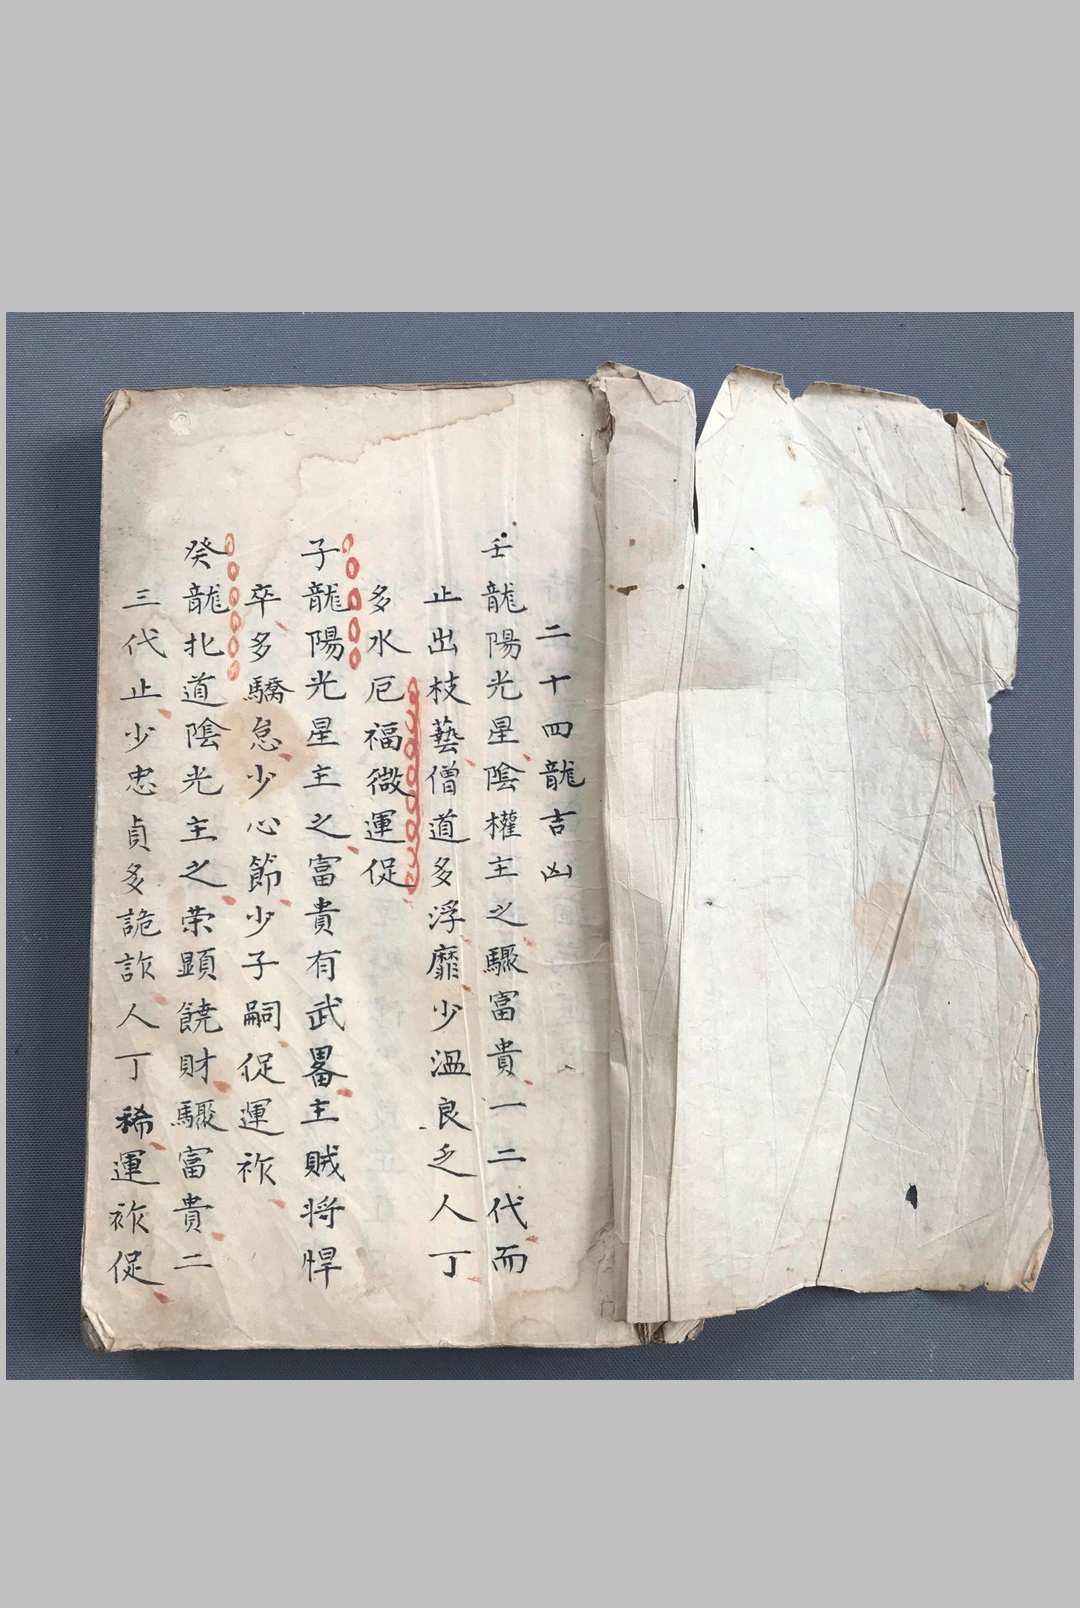 二十四龍吉凶
壬龍陽光星陰權主之驟富貴一二代而
止出枝藝僧道多浮靡少溫良乏人丁
多水厄福微運促
子龍陽光星主之富貴有武畧主賊将悍
卒多驕急少心節少子嗣促運祚
癸龍北道陰光主之荣顕饒財驟富貴二
三代止少忠貞多詭詐人丁稀運祚促